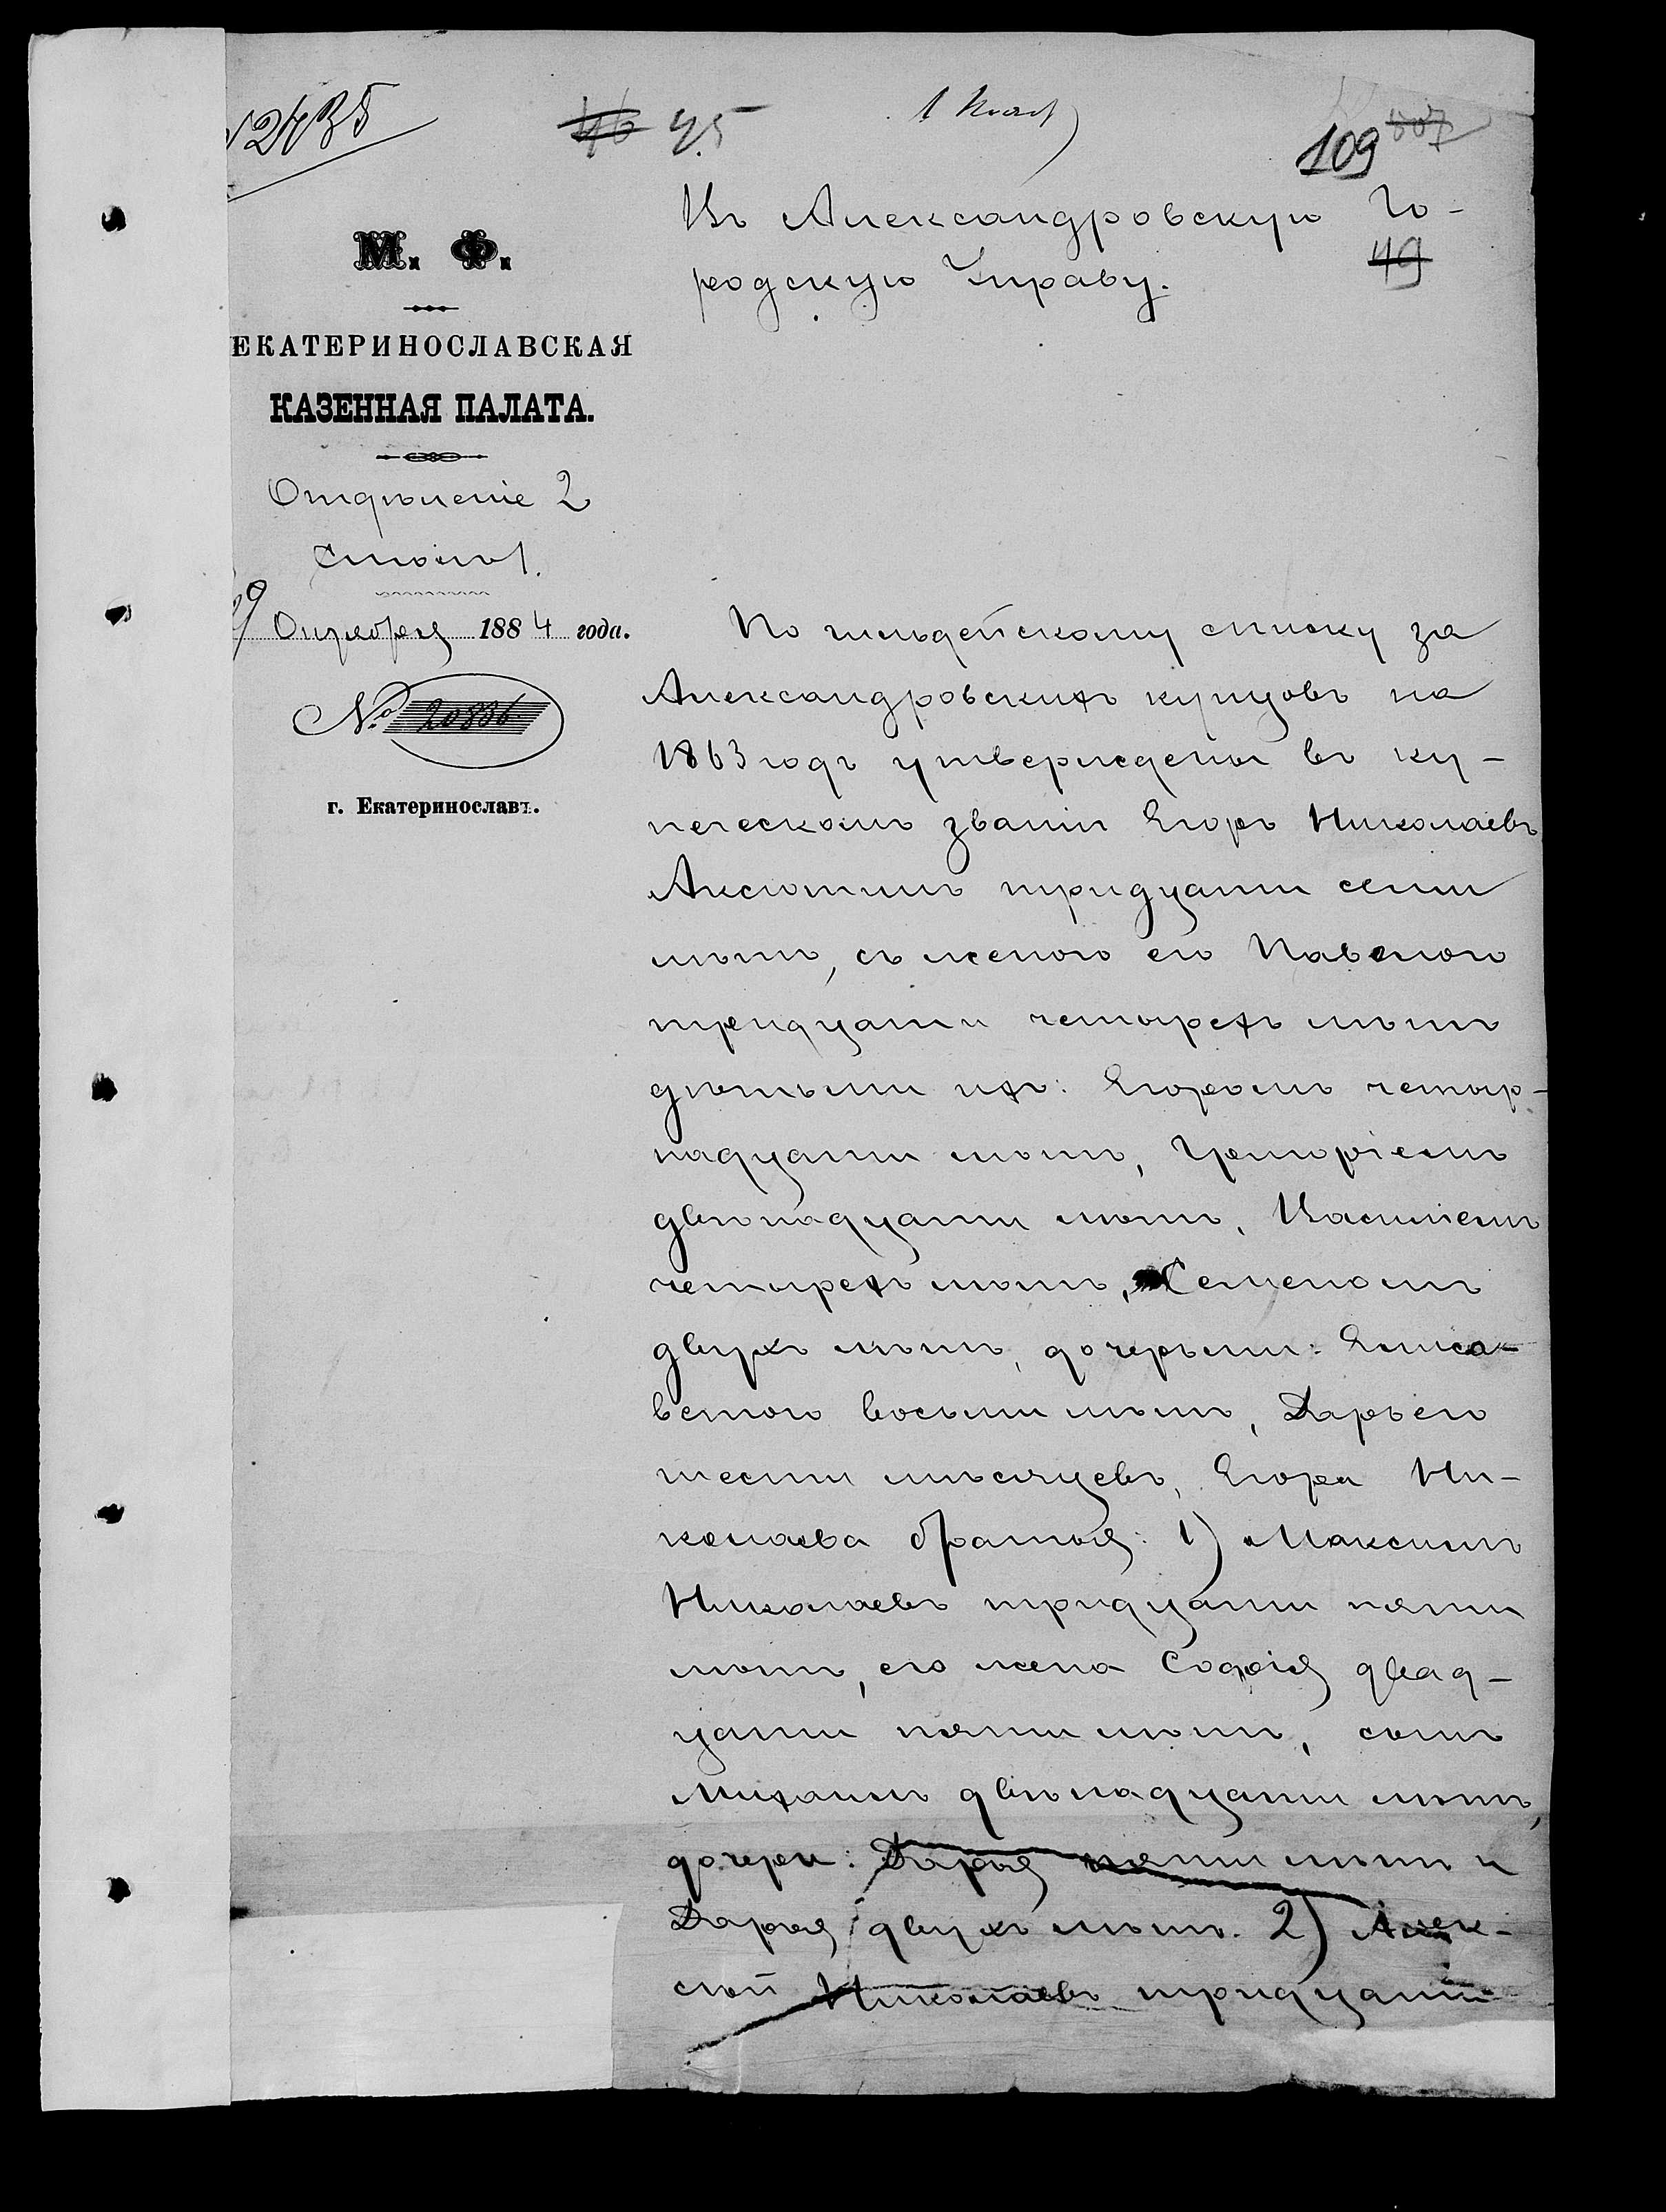 12435
46 45
109 807
Въ Александровскую Го-
49
родскую Управу.
М. Ф.
ЕКАТЕРИНОСЛАВСКАЯ
КАЗЕННАЯ ПАЛАТА.
Отдѣленіе 2
Столъ 1.
29 Октября 1884 года.
№ 20836
г. Екатеринославъ.
По гильдейскому списку за
Александровскихъ купцовъ на
1863 годъ утверждены въ ку-
печескомъ званіи Егоръ Николаевъ
Аксютинъ тридцати семи
лѣтъ, съ женою его
тридцати четырехъ лѣтъ
дѣтьми ихъ: Егоромъ четыр-
надцати лѣтъ, Григоріемъ
двѣнадцати лѣтъ, Василіемъ
четырехъ лѣтъ, Семеномъ
двухъ лѣтъ, дочерьми: Елиса-
ветою восьми лѣтъ, Дарьею
шести мѣсяцевъ, Егора Ни-
колаева братья: 1) Максимъ
Николаевъ тридцати пяти
лѣтъ, его жена Софія двад-
цати пяти лѣтъ, сынъ
Михаилъ двѣнадцати лѣтъ,
дочери: Дарья пяти лѣтъ и
Дарья двухъ лѣтъ. 2) Алек-
сѣй Николаевъ тридцати